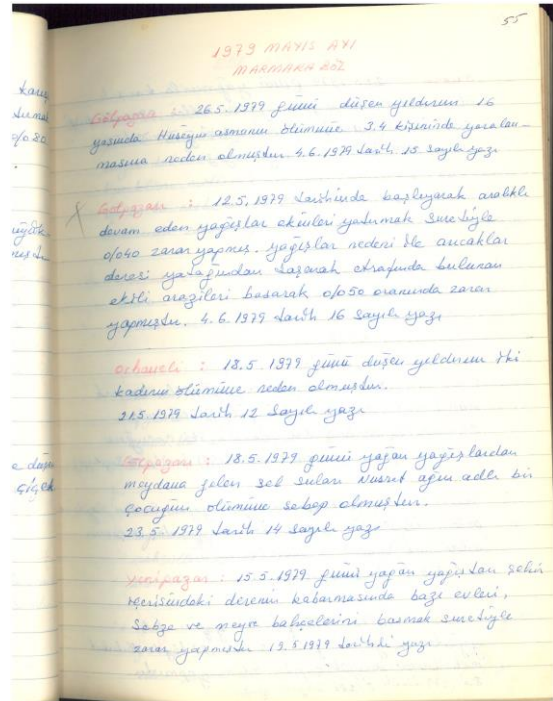 55
1979 MAYIS AYI
MARMARA BÖL
Gölpazarı : 26.5.1979 günü düşen yıldırım 16
yaşında Hüseyin asmanın ölümüne 3.4 kişininde yaralan-
masına neden olmuştur. 4.6.1979 tarih 15 Sayılı yazı
Gölpazarı : 12.5.1979 tarihinde başlıyarak aralıklı
devam eden yağışlar ekinleri yatırmak suretiyle
0/040 zarar yapmış. yağışlar nedeni ile
deresi yatağından taşarak etrafında bulunan
ekili arazileri basarak 0/050 oranında zarar
yapmıştır. 4.6.1979 tarih 16 Sayılı yazı
Orhaneli : 18.5.1979 günü düşen yıldırım iki
kadının ölümüne neden olmuştur.
21.5.1979 tarih 12 Sayılı yazı
Gölpazarı : 18.5.1979 günü yağan yağışlardan
meydana gelen sel suları Nusret adlı bir
çocuğun ölümüne sebep olmuştur.
23.5.1979 tarih 14 sayılı yazı
Yenipazar : 15.5.1979 günü yağan yağıştan şehir
içerisindeki derenin kabarmasında bazı evleri,
Sebze ve meyve bahçelerini basmak suretiyle
zarar yapmıştır 19.5.1979 tarihli yazı